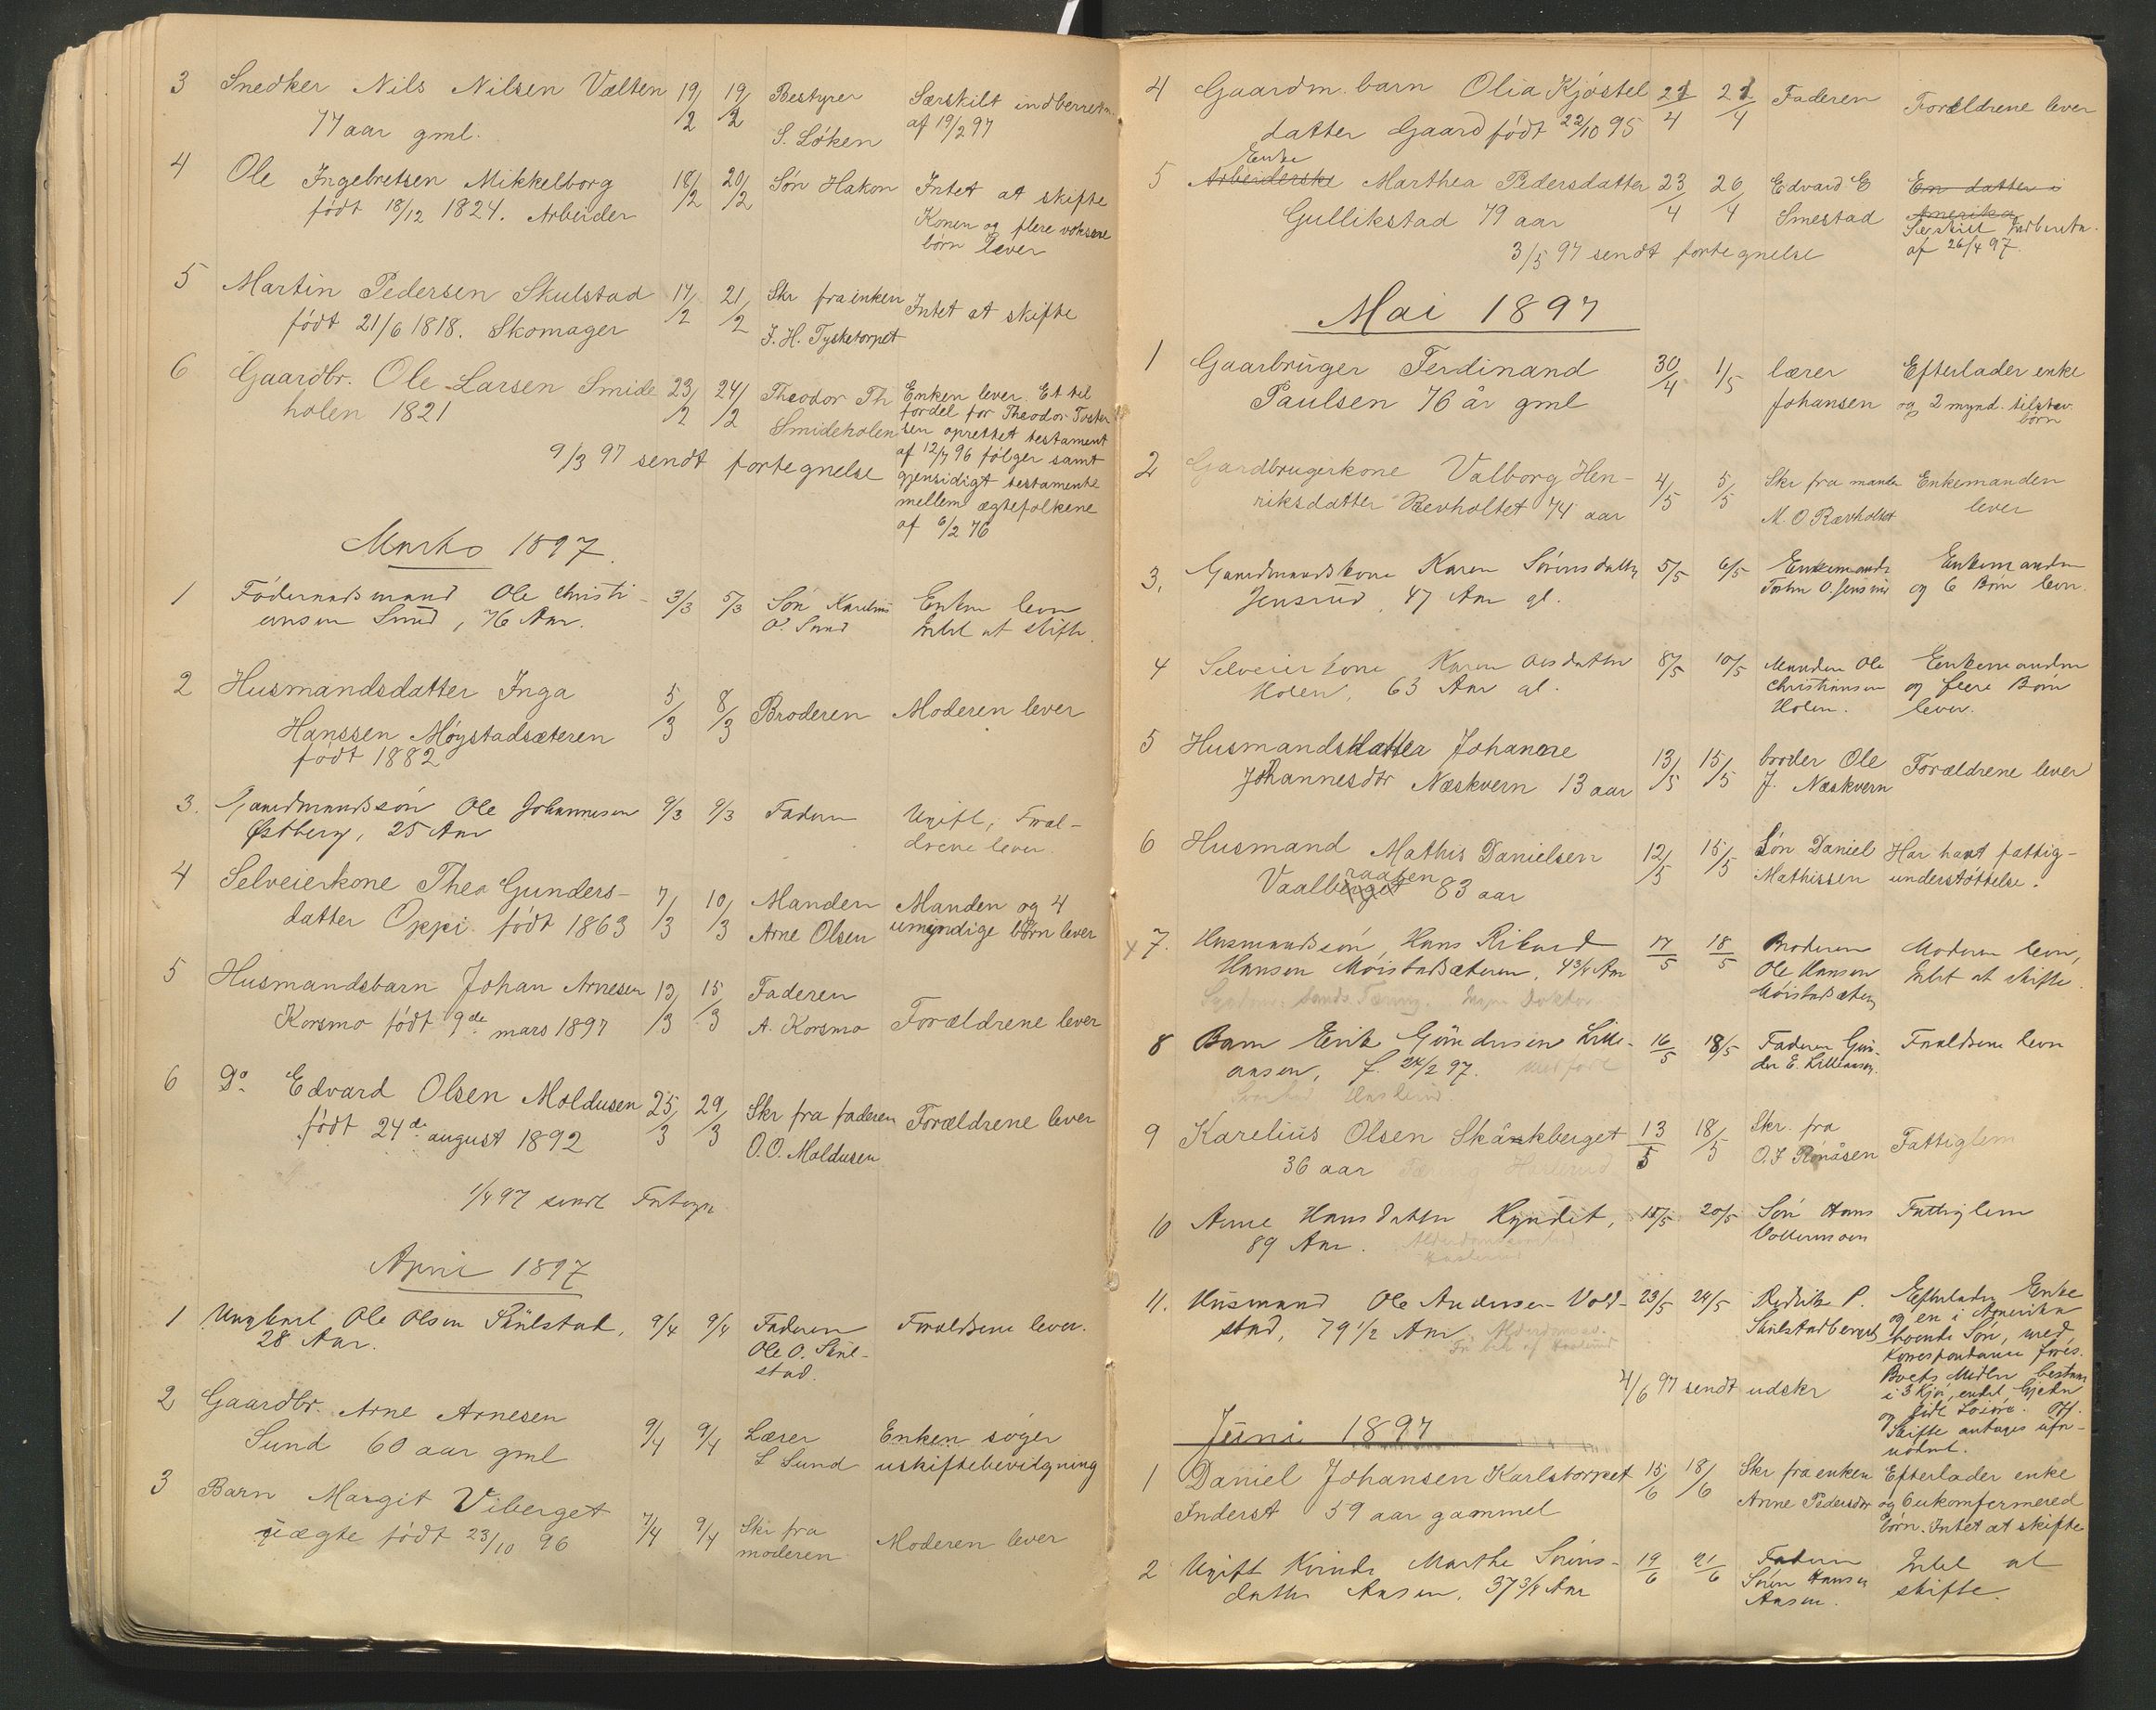 3 Snedker Nils Nilsen Vælten 19/2 19/2 Bestyrer Særskilt indberretn.
77 aar gml. S. Löken af 19/2 97
4 Ole Ingebretsen Mikkelborg 18/2 20/2 Sön Hakon Intet at skifte
född 18/12 1824. Arbeider Konen og flere voksne
börn lever
5 Martin Pedersen Skulstad 17/2 21/2 Skr fra enken Intet at skifte
födt 21/6 1818. Skomager J. H. Tysketorpet
6 Gaardbr. Ole Larsen Smide 23/2 24/2 Theodor Th Enken lever. Et til
holen 1821 Smideholen fordel for Theodor Toster
sen oprettet testament
9/3 97 sendt fortegnelse af 12/7 96 fölger samt
gjensidigt testamente
mellem ægtefolkene
af 6/2 76
Marts 1897.
1 Föderaadsmand Ole Christi- 3/3 5/3 Sön Karelius Enken lever
ansen Sund, 76 Aar. O. Sund Intet at skifte.
2 Husmandsdatter Inga 5/3 8/3 Broderen Moderen lever
Hanssen Möystadsæteren
födt 1882
3. Gaardmandssön Ole Johannesen 9/3 9/3 Faderen Ugift, Foræl-
Östberg, 25 Aar drene lever.
4 Selveierkone Thea Gunders- 7/3 10/3 Manden Manden og 4
datter Oppi födt 1863 Arne Olsen umyndige börn lever
5 Husmandsbarn Johan Arnesen 13/3 15/3 Faderen
Korsmo födt 9de mars 1897 A. Korsmo Forældrene lever
6 Do Edvard Olsen Moldusen 25/3 29/3 Skr fra faderen Forældrene lever
födt 24de august 1892 O. O. Moldusen
1/4 97 sendt Fortegn
April 1897
1 Ungkarl Ole Olsen Skulstad, 9/4 9/4 Faderen Forældrene lever.
28 Aar. Ole O. Skul-
stad.
2 Gaardbr. Arne Arnesen 9/4 9/4 Lærer Enken söger
Sund 60 aar gml L Sund uskiftebevilgning
3 Barn Margit Viberget 7/4 9/4 Skr fra Moderen lever
uægte födt 23/10 96 moderen
4 Gaardm. barn Olia Kjöstel 21/4 21/4 Faderen Forældrene lever
datter Gaard födt 22/10 95
Enke
5 Arbeiderske Marthea Pedersdatter 23/4 26/4 Edvard E En datter i
Gullikstad 79 aar Smestad Amerika
Særskilt Indberetn.
3/5 97 sendt fortegnelse af 26/4 97.
Mai 1897
1 Gaarbruger Ferdinand 30/4 1/5 lærer Efterlader enke
Paulsen 76 år gml Johansen og 2 mynd. tilstev.
börn
2 Gardbrugerkone Valborg Hen- 4/5 5/5 Skr fra manden Enkemanden
riksdatter Revholtet 74 aar M. O Rævholtet lever
3. Gaardmandskone Karen Sörensdatter 5/5 6/5 Enkemand Enkemanden
Jensrud, 47 Aar gl. O. Jensrud og 6 Börn lever.
4 Selveierkone Karen Olsdatter 8/5 10/5 Manden Ole Enkemanden
Holen, 63 Aar gl. Christiansen og flere Börn
Holen. lever.
5 Husmandsdatter Johanne 13/5 15/5 broder Ole Forældrene lever
Johannesdtr Næskvern 13 aar J. Næskvern
6 Husmand Mathis Danielsen 12/5 15/5 Sön Daniel Har havt fattig-
Vaalberget 83 aar Mathissen understöttelse.
x 7. Husmandssön, Hans Rikard 17/5 18/5 Broderen Moderen lever,
Hansen Möistadsæteren, 4 3/4 Aar Ole Hansen Intet at skifte.
Möistadsæteren
8 Barn Erik Gundersen Lille- 16/5 18/5 Faderen Gun- Forældrene lever
aasen, f. 24/2 97. der E. Lilleaasen.
9 Karelius Olsen Skånkberget 13/5 18/5 Skr. fra Fattiglem
36 aar O. J Rönåsen
10 Anne Hansdatter Kyndet, 18/5 20/5 Sön Hans Fattiglem
89 Aar.
11. Husmand Ole Andersen Vold- 23/5 24/5 Fredrik P. Efterlader Enke
stad, 79 1/2 Aar Skulstadberget og en i Amerika
boende Sön, med
Korrespondance
4/6 97 sendt udskr Boets Midler bestaar
i 3 Kjör, endel Gjeder
og lidt Lösöre. Off.
Skifte antages ufor-
nödent.
Juni 1897
1 Daniel Johansen Karlstorpet 15/6 18/6 Skr fra enken Efterlader enke
Inderst 59 aar gammel Anne Pedersdtr og 6 ukomfermered
börn. Intet at skifte
2 Ugift Kvinde Marthe Sörens- 19/6 21/6 Faderen Intet at
datter Aasen, 37 3/4 Aar Sören Hansen skifte.
Aasen.